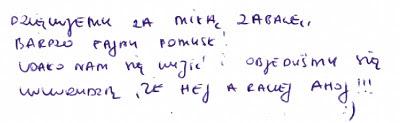 DZIĘKUJEMY ZA MIŁĄ ZABAWĘ,,
BARDZO FAJNY POMYSŁ!
UDAŁO NAM SIĘ WYJŚĆ I OBJEDLIŚMY SIĘ
, ŻE HEJ A RACZEJ AHOJ!!!
:)